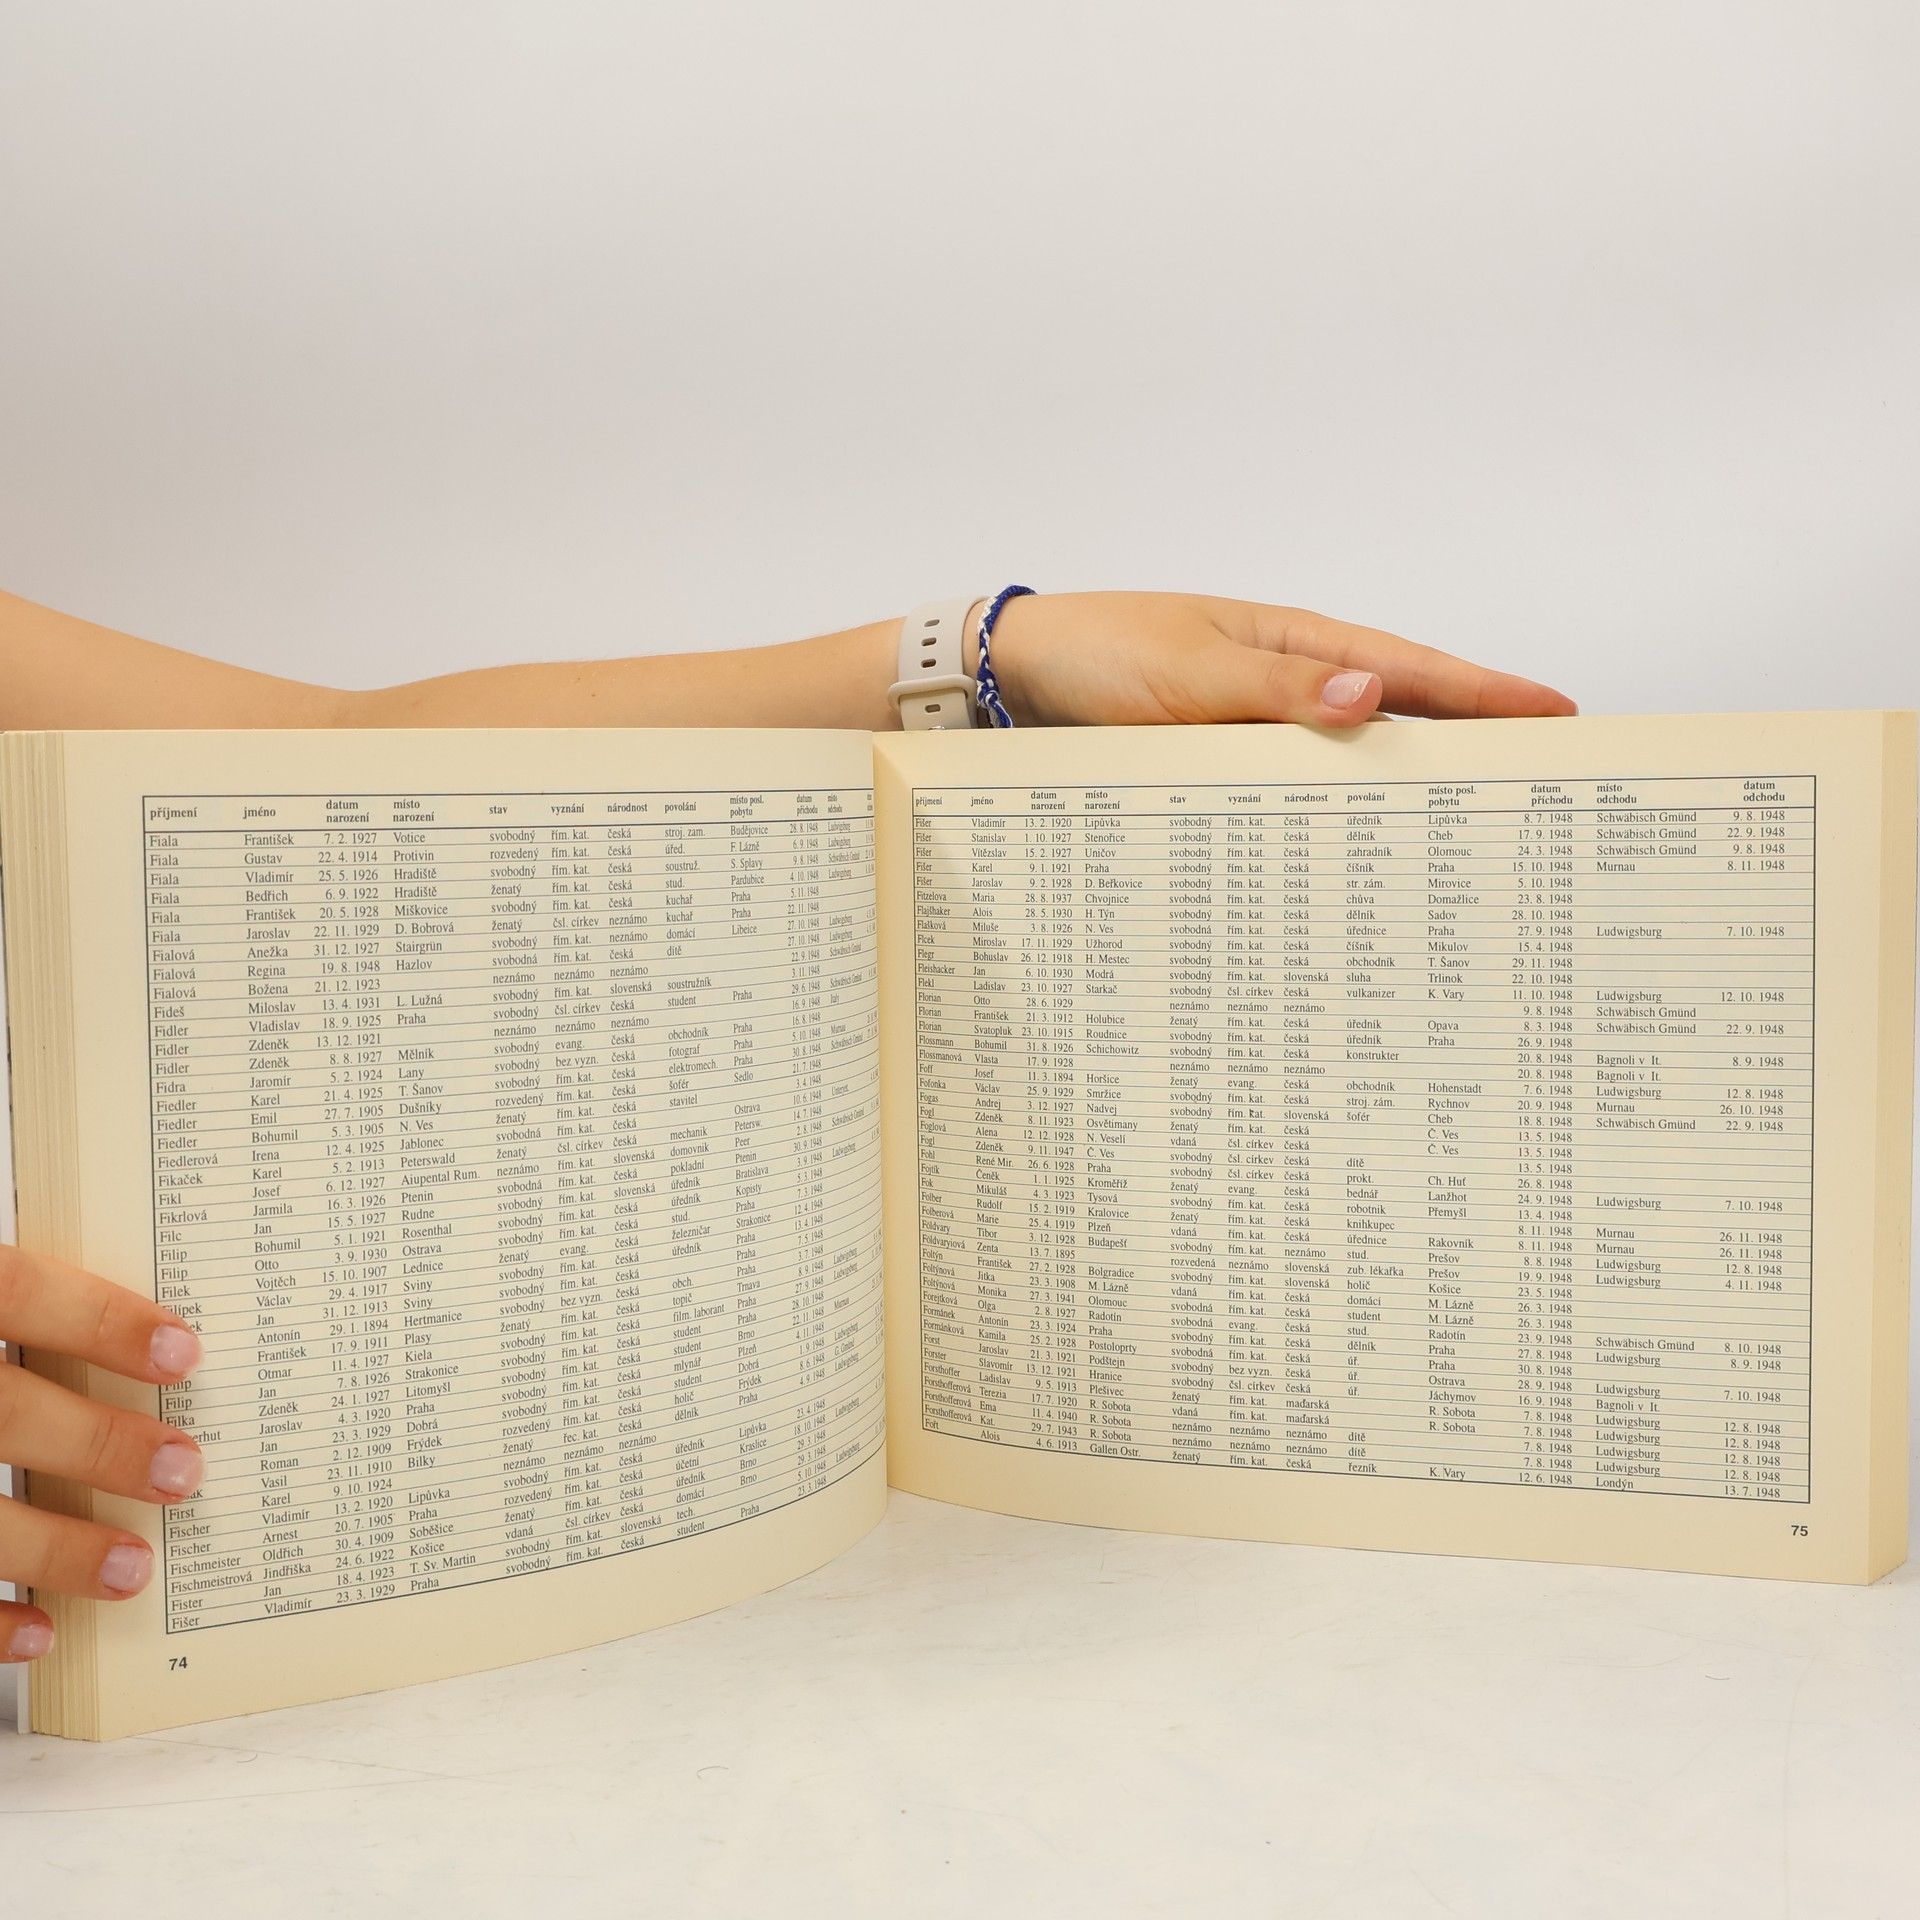 příjmení jméno datum narození místo narození stav vyznání národnost povolání místo posl. pobytu datum příchodu místo odchodu
Fiala František 7. 2. 1927 Votice svobodný řím. kat. česká stroj. zam. Budějovice 28. 8. 1948 Ludwigsburg
Fiala Gustav 22. 4. 1914 Protivin rozvedený řím. kat. česká úřed. F. Lázně 6. 9. 1948 Ludwigsburg
Fiala Vladimír 25. 5. 1926 Hradiště svobodný řím. kat. česká soustruž. S. Splavy 9. 8. 1948 Schwäbisch Gmünd
Fiala Bedřich 6. 9. 1922 Hradiště ženatý řím. kat. česká stud. Pardubice 4. 10. 1948 Ludwigsburg
Fiala František 20. 5. 1928 Miškovice svobodný řím. kat. česká kuchař Praha 5. 11. 1948
Fiala Jaroslav 22. 11. 1929 D. Bobrová ženatý čsl. církev neznámo kuchař Praha 22. 11. 1948
Fialová Anežka 31. 12. 1927 Stairgrün svobodný řím. kat. neznámo domácí Libeice 27. 10. 1948 Ludwigsburg
Fialová Regina 19. 8. 1948 Hazlov svobodná řím. kat. česká dítě 27. 10. 1948 Ludwigsburg
Fialová Božena 21. 12. 1923 neznámo neznámo neznámo 22. 9. 1948 Schwäbisch Gmünd
Fideš Miloslav 13. 4. 1931 L. Lužná svobodný řím. kat. slovenská soustružník 3. 11. 1948
Fidler Vladislav 18. 9. 1925 Praha svobodný čsl. církev česká student Praha 29. 6. 1948 Schwäbisch Gmünd
Fidler Zdeněk 13. 12. 1921 neznámo neznámo neznámo 16. 9. 1948 Italy
Fidler Zdeněk 8. 8. 1927 Mělník svobodný evang. česká obchodník Praha 16. 8. 1948
Fidra Jaromír 5. 2. 1924 Lany svobodný bez vyzn. česká fotograf Praha 5. 10. 1948 Murnau
Fiedler Karel 21. 4. 1925 T. Šanov svobodný řím. kat. česká elektromech. Praha 30. 8. 1948 Schwäbisch Gmünd
Fiedler Emil 27. 7. 1905 Dušníky rozvedený řím. kat. česká šofér Sedlo 21. 7. 1948
Fiedler Bohumil 5. 3. 1905 N. Ves ženatý řím. kat. česká stavitel 3. 4. 1948
Fiedlerová Irena 12. 4. 1925 Jablonec svobodná řím. kat. česká
Fikaček Karel 5. 2. 1913 Peterswald ženatý čsl. církev česká mechanik
Fikl Josef 6. 12. 1927 Aiupental Rum. neznámo řím. kat. slovenská domovník
Fikrlová Jarmila 16. 3. 1926 Ptenin svobodná řím. kat. česká pokladní Ptenin
Filc Jan 15. 5. 1927 Rudne svobodný řím. kat. slovenská úředník Bratislava
Filip Bohumil 5. 1. 1921 Rosenthal svobodný řím. kat. česká úředník Kopisty
Filip Otto 3. 9. 1930 Ostrava svobodný řím. kat. česká stud. Praha
Filek Vojtěch 15. 10. 1907 Lednice ženatý evang. česká železničar Strakonice
Václav 29. 4. 1917 Sviny svobodný řím. kat. česká úředník Praha
Jan 31. 12. 1913 Sviny svobodný řím. kat. česká
Antonín 29. 1. 1894 Hertmanice svobodný bez vyzn. česká obch.
František 17. 9. 1911 Plasy ženatý řím. kat. česká topič
Otmar 11. 4. 1927 Kiela svobodný řím. kat. česká film. laborant
Jan 7. 8. 1926 Strakonice svobodný řím. kat. česká student
Filip Zdeněk 24. 1. 1927 Litomyšl svobodný řím. kat. česká student
Filka Jaroslav 4. 3. 1920 Praha svobodný řím. kat. česká mlynář
Jan 23. 3. 1929 Dobrá svobodný řím. kat. česká student
Roman 2. 12. 1909 Frýdek rozvedený řím. kat. česká holič Frýdek
Vasil 23. 11. 1910 Bilky ženatý řec. kat. česká dělník Praha
Karel 9. 10. 1924 neznámo neznámo neznámo
First Vladimír 13. 2. 1920 Lipůvka svobodný řím. kat. česká úředník Lipůvka
Fischer Arnest 20. 7. 1905 Praha rozvedený řím. kat. česká účetní Kraslice
Fischer Oldřich 30. 4. 1909 Soběšice ženatý řím. kat. česká úředník Brno
Fischmeister
Fischmeistrová Jindřiška 24. 6. 1922 Košice vdaná čsl. církev česká domácí Brno
Fister Jan 18. 4. 1923 T. Sv. Martin svobodný řím. kat. slovenská tech.
Fišer Vladimír 23. 3. 1929 Praha svobodný řím. kat. česká student Praha 23. 3. 1948
74
příjmení jméno datum narození místo narození stav vyznání národnost povolání místo posl. pobytu datum příchodu místo odchodu datum odchodu
Fišer Vladimír 13. 2. 1920 Lipůvka svobodný řím. kat. česká úředník Lipůvka 8. 7. 1948 Schwäbisch Gmünd 9. 8. 1948
Fišer Stanislav 1. 10. 1927 Stenořice svobodný řím. kat. česká dělník Cheb 17. 9. 1948 Schwäbisch Gmünd 22. 9. 1948
Fišer Vítězslav 15. 2. 1927 Uničov svobodný řím. kat. česká zahradník Olomouc 24. 3. 1948 Schwäbisch Gmünd 9. 8. 1948
Fišer Karel 9. 1. 1921 Praha svobodný řím. kat. česká číšník Praha 15. 10. 1948 Murnau 8. 11. 1948
Fišer Jaroslav 9. 2. 1928 D. Beřkovice svobodný řím. kat. česká str. zám. Mirovice 5. 10. 1948
Fitzelova Maria 28. 8. 1937 Chvojnice svobodná řím. kat. česká chůva Domažlice 23. 8. 1948
Flajšhaker Alois 28. 5. 1930 H. Týn svobodný řím. kat. česká dělník Sadov 28. 10. 1948
Flašková Miluše 3. 8. 1926 N. Ves svobodná řím. kat. česká úřednice Praha 27. 9. 1948 Ludwigsburg 7. 10. 1948
Flcek Miroslav 17. 11. 1929 Užhorod svobodný řím. kat. česká číšník Mikulov 15. 4. 1948
Flegr Bohuslav 26. 12. 1918 H. Mestec svobodný řím. kat. česká obchodník T. Šanov 29. 11. 1948
Fleishacker Jan 6. 10. 1930 Modrá svobodný řím. kat. slovenská sluha Trlinok 22. 10. 1948
Flekl Ladislav 23. 10. 1927 Starkač svobodný čsl. církev česká vulkanizer K. Vary 11. 10. 1948 Ludwigsburg 12. 10. 1948
Florian Otto 28. 6. 1929 neznámo neznámo neznámo 9. 8. 1948 Schwäbisch Gmünd
Florian František 21. 3. 1912 Holubice ženatý řím. kat. česká úředník Opava 8. 3. 1948 Schwäbisch Gmünd 22. 9. 1948
Florian Svatopluk 23. 10. 1915 Roudnice svobodný řím. kat. česká úředník Praha 26. 9. 1948
Flossmann Bohumil 31. 8. 1926 Schichowitz svobodný řím. kat. česká konstrukter 20. 8. 1948 Bagnoli v It. 8. 9. 1948
Flossmanová Vlasta 17. 9. 1928 neznámo neznámo neznámo 20. 8. 1948 Bagnoli v It.
Foff Josef 11. 3. 1894 Horšice ženatý evang. česká obchodník Hohenstadt 7. 6. 1948 Ludwigsburg 12. 8. 1948
Fofonka Václav 25. 9. 1929 Smržice svobodný řím. kat. česká stroj. zám. Rychnov 20. 9. 1948 Murnau 26. 10. 1948
Fogas Andrej 3. 12. 1927 Nadvej svobodný řím. kat. slovenská šofér Cheb 18. 8. 1948 Schwäbisch Gmünd 22. 9. 1948
Fogl Zdeněk 8. 11. 1923 Osvětimany ženatý řím. kat. česká Č. Ves 13. 5. 1948
Foglová Alena 12. 12. 1928 N. Veselí vdaná čsl. církev česká Č. Ves 13. 5. 1948
Fogl Zdeněk 9. 11. 1947 Č. Ves svobodný čsl. církev česká dítě 13. 5. 1948
Fohl René Mir. 26. 6. 1928 Praha svobodný čsl. církev česká prokt. Ch. Huť 26. 8. 1948
Fojtík Čeněk 1. 1. 1925 Kroměříž ženatý evang. česká bednář Lanžhot 24. 9. 1948 Ludwigsburg 7. 10. 1948
Fok Mikuláš 4. 3. 1923 Tysová svobodný řím. kat. česká robotnik Přemyšl 13. 4. 1948
Folber Rudolf 15. 2. 1919 Kralovice ženatý řím. kat. česká knihkupec 8. 11. 1948 Murnau 26. 11. 1948
Folberová Marie 25. 4. 1919 Plzeň vdaná řím. kat. česká úřednice Rakovník 8. 11. 1948 Murnau 26. 11. 1948
Földváry Tibor 3. 12. 1928 Budapešť svobodný řím. kat. neznámo stud. Prešov 8. 8. 1948 Ludwigsburg 12. 8. 1948
Földvaryiová Zenta 13. 7. 1895 rozvedená neznámo slovenská zub. lékařka Prešov 19. 9. 1948 Ludwigsburg 4. 11. 1948
Foltýn František 27. 2. 1928 Bolgradice svobodný řím. kat. slovenská holič Košice 23. 5. 1948
Foltýnová Jitka 23. 3. 1908 M. Lázně vdaná řím. kat. česká domácí M. Lázně 26. 3. 1948
Foltýnová Monika 27. 3. 1941 Olomouc svobodná řím. kat. česká student M. Lázně 26. 3. 1948
Forejtková Olga 2. 8. 1927 Radotín svobodná evang. česká stud. Radotín 23. 9. 1948 Schwäbisch Gmünd 8. 10. 1948
Formánek Antonín 23. 3. 1924 Praha svobodný řím. kat. česká dělník Praha 27. 8. 1948 Ludwigsburg 8. 9. 1948
Formánková Kamila 25. 2. 1928 Postoloprty svobodná řím. kat. česká úř. Praha 30. 8. 1948
Forst Jaroslav 21. 3. 1921 Podštejn svobodný bez vyzn. česká úř. Ostrava 28. 9. 1948 Ludwigsburg 7. 10. 1948
Forster Slavomír 13. 12. 1921 Hranice svobodný čsl. církev česká úř. Jáchymov 16. 9. 1948 Bagnoli v It.
Forsthoffer Ladislav 9. 5. 1913 Plešivec ženatý řím. kat. maďarská R. Sobota 7. 8. 1948 Ludwigsburg 12. 8. 1948
Forsthofferová Terezia 17. 7. 1920 R. Sobota vdaná řím. kat. maďarská R. Sobota 7. 8. 1948 Ludwigsburg 12. 8. 1948
Forsthofferová Ema 11. 4. 1940 R. Sobota neznámo neznámo neznámo dítě 7. 8. 1948 Ludwigsburg 12. 8. 1948
Forsthofferová Kat. 29. 7. 1943 R. Sobota neznámo neznámo neznámo dítě 7. 8. 1948 Ludwigsburg 12. 8. 1948
Fořt Alois 4. 6. 1913 Gallen Ostr. ženatý řím. kat. česká řezník K. Vary 12. 6. 1948 Londýn 13. 7. 1948
75